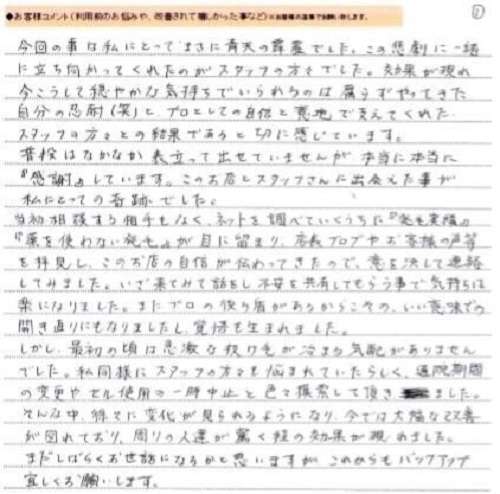 ●お客様コメント(利用前のお悩みや、改善されて嬉しかった事など)※お客様の直筆でお願い致します。
今回の事は私にとってまさに青天の霹靂でした。この悲劇に一緒
に立ち向かってくれたのがスタッフの方々でした。効果が現れ
今こうして穏やかな気持ちでいられるのは腐らずやってきた
自分の忍耐(笑)と、プロとしての自信と意地で支えてくれた
スタッフの方々との結果であると切に感じています。
普段はなかなか表立って出せていませんが、本当に本当に
『感謝』しています。このお店とスタッフさんに出会えた事が
私にとっての奇跡でした。
当初相談する相手もなく、ネットを調べていくうちに『発毛実績』
『薬を使わない発毛』が目に留まり、店長ブログやお客様の声等
を拝見し、このお店の自信が伝わってきたので、意を決して連絡
してみました。いざ来てみて話をし不安を共有してもらう事で気持ちは
楽になりました。またプロの後ろ盾があるからこその、いい意味での
開き直りにもなりましたし、覚悟も生まれました。
しかし、最初の頃は急激な抜け毛が治まる気配がありません
でした。私同様にスタッフの方々も悩まれていたらしく、通院期間
の変更や 使用の一時中止と色々模索して頂きました。
そんな中、徐々に変化が見られるようになり、今では大幅な改善
が図れており、周りの人達が驚く程の効果が現れました。
まだしばらくお世話になるかと思いますが、これからもバックアップ
宜しくお願いします。